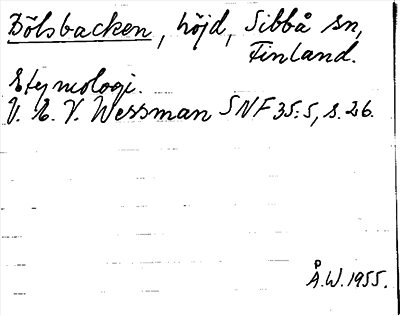 Bölsbacken, höjd, Sibbå sn,
Finland.
Etymologi.
V. E. V. Wessman SNF 35:5, s. 26.
Å.W. 1955.